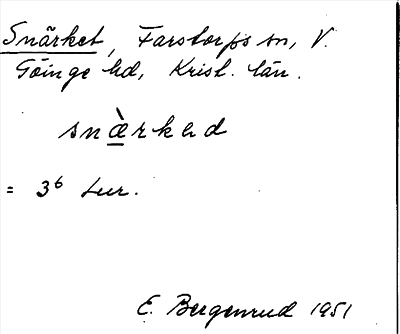 Snärket, Farstorps sn, V.
Göinge hd, Krist. län.
snæ̀rkəd
= 36 tur.
E. Bergenrud 1951